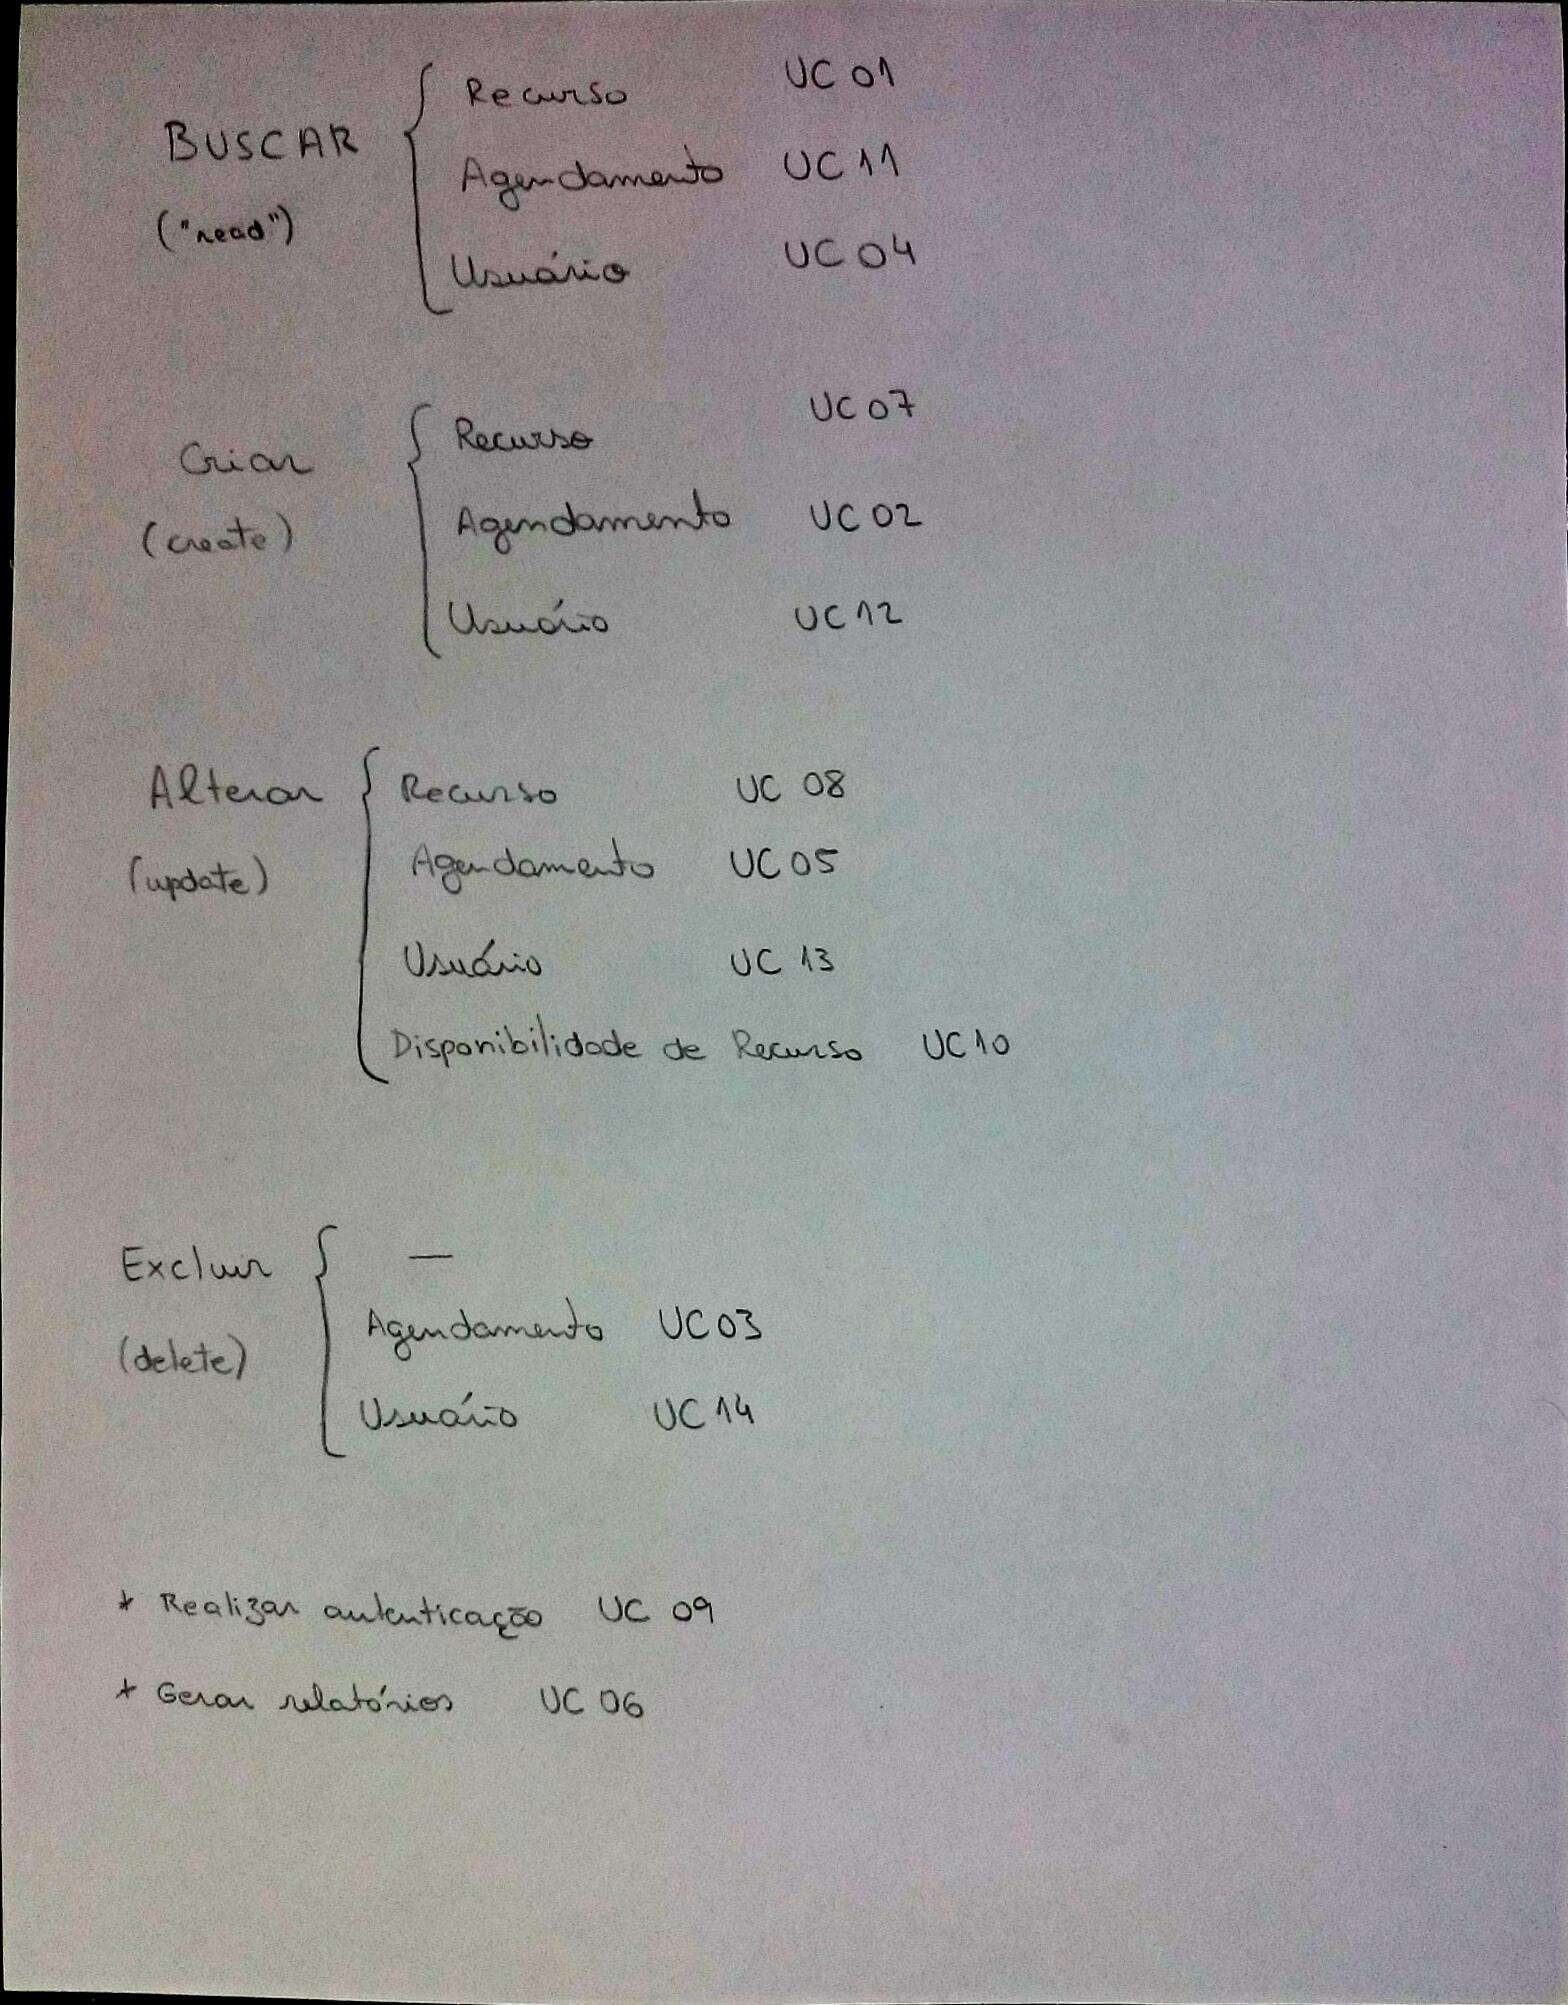 BUSCAR
("read")
Recurso UC 01
Agendamento UC 11
Usuário UC 04
Criar
(create)
Recurso UC 07
Agendamento UC 02
Usuário UC 12
Alterar
(update)
Recurso UC 08
Agendamento UC 05
Usuário UC 13
Disponibilidade de Recurso UC 10
Excluir
(delete)
—
Agendamento UC 03
Usuário UC 14
* Realizar autenticação UC 09
* Gerar relatórios UC 06